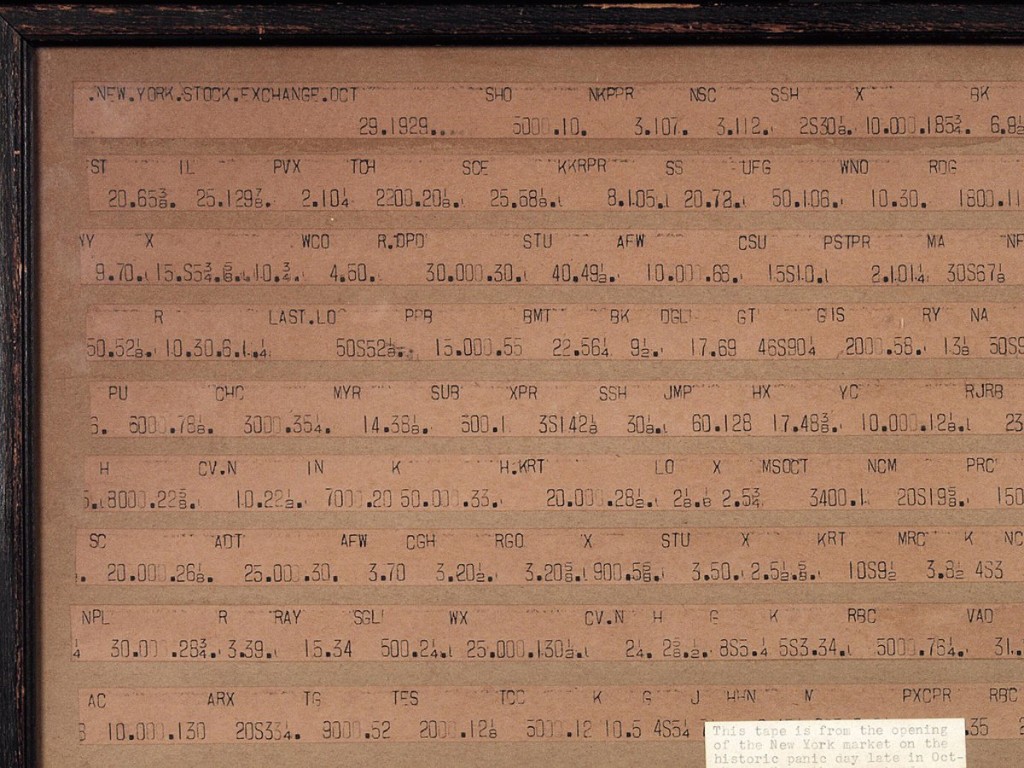 .NEW.YORK.STOCK.EXCHANGE.OCT SHO NKPPR NSC SSH X BK
29.1929.... 5000.10. 3.107. 3.112. 2S30 1/8. 10.000.185 3/4.
ST IL PVX TCH SCE KKRPR SS UFG WNO RDG
20.65 3/8. 25.129 7/8. 2.10 1/4 2200.20 1/8. 25.68 1/8. 8.105. 20.72. 50.106. 10.30.
X WCO R.DPD STU AFW CSU PSTPR MA
9.70. 4.50. 30.000.30. 40.49 1/2. 10.000.68. 15S10. 2.101 1/4 30S67 1/8
R LAST.LO PPB BMT BK DGL GT GIS RY NA
50.52 1/8. 10.30.6. 50S52 15.000.55 22.56 1/4 9 1/2. 17.69 46S90 1/4 2000.58. 13 1/8
PU CHC MYR SUB XPR SSH JMP HX YC RJRB
5000.78 1/8. 3000.35 1/4. 14.38 1/8. 500.1 3S142 1/8 30 1/8. 60.128 17.48 3/8. 10.000.12 1/8. 23
H CV.N IN K H.KRT LO X MSOCT NCM PRC
8000.22 5/8. 10.22 1/2. 7000.20 50.000.33. 20.000.28 1/2. 2.5 3/4 3400.1 20S19 5/8. 150
SC ADT AFW CGH RGO X STU X KRT MRC K NC
20.000.26 1/8. 25.000.30. 3.70 3.20 1/2. 3.20 5/8. 900.5 5/8. 3.50. 10S9 1/2 3.8 1/2 4S3
NPL R RAY SGL WX CV.N H G K RBC VAD
30.000.28 3/4. 3.39. 15.34 500.24. 25.000.130 1/2. 8S5. 5S3.34. 5000.76 1/4. 31.
AC ARX TG TES TCC K G J HHN M PXCPR RBC
10.000.130 20S33 1/4. 9000.52 2000.12 1/8 5000.12 10.5 4S5 1/4 .35
This tape is from the opening
of the New York market on the
historic panic day late in Oct-